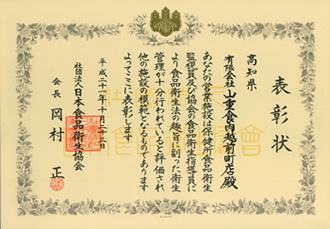 表彰状
高知県
有限会社山重食肉越前町店殿
あなたの営業施設は保健所食品衛生
監視員及び協会の食品衛生指導員に
より食品衛生法の趣旨に副った衛生
管理が十分行われていると評価され
他の施設の模範となるものであります
よってここに表彰します
平成二十一年十月二十二日
社団法人日本食品衛生協会
会長 岡村 正